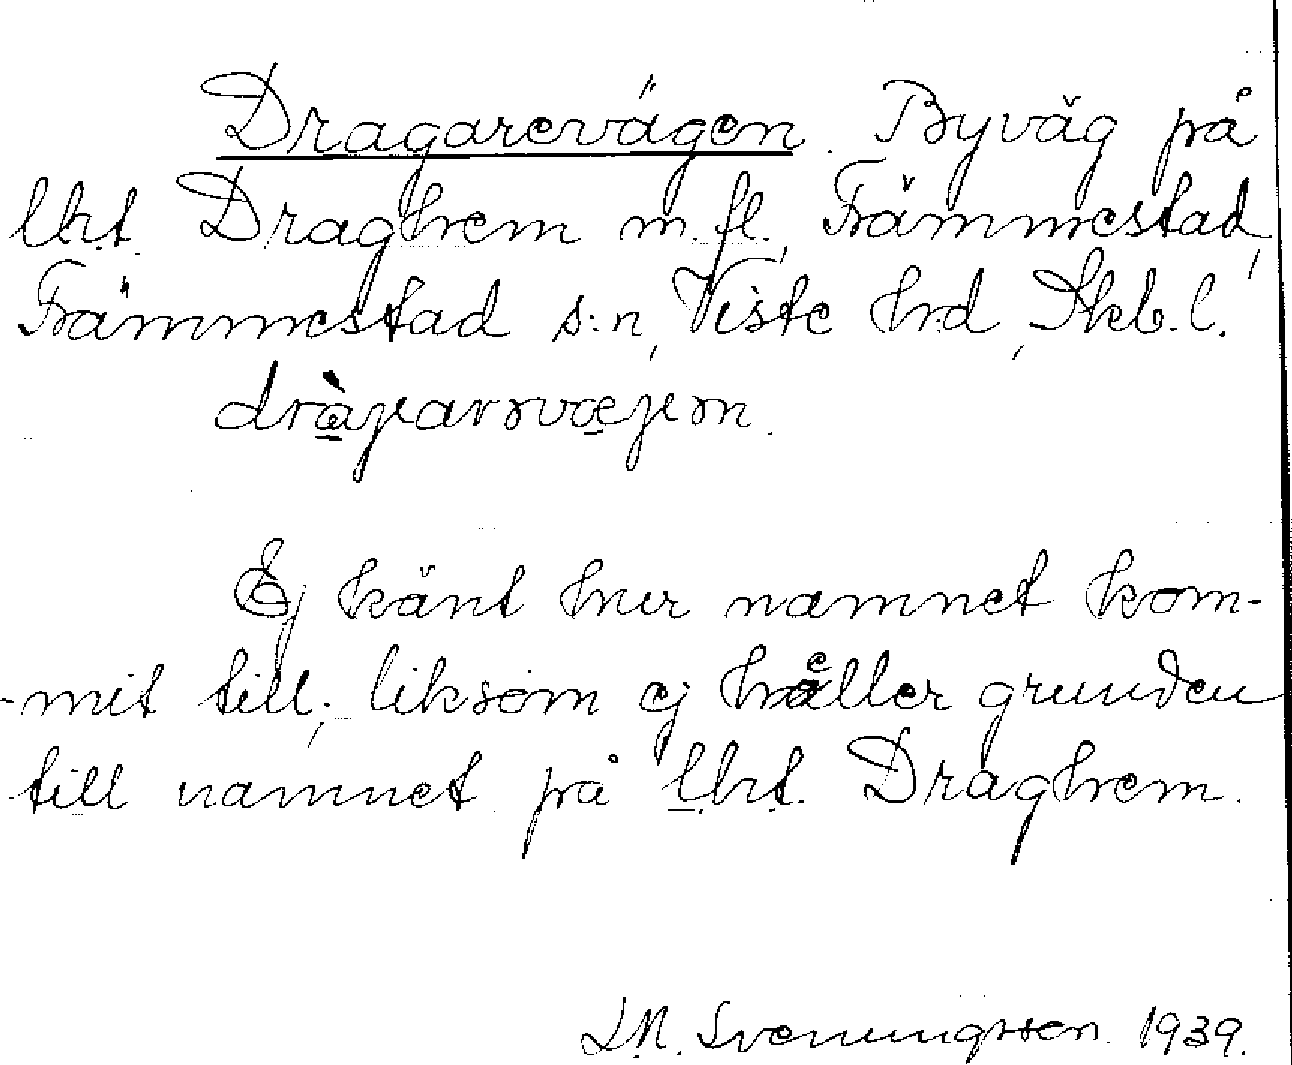 Dragarevägen. Byväg på
lht. Draghem m.fl., Främmestad,
Främmestad s:n, Viste hrd, Skb.l.
Ej känt hur namnet kom-
-mit till, liksom ej heller grunden
till namnet på lht. Draghem.
Svenungsson 1939.